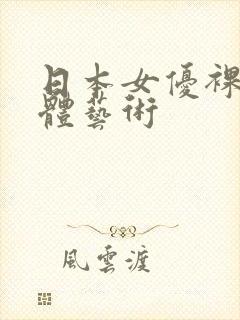 日本女優裸
體藝術
風雲渡